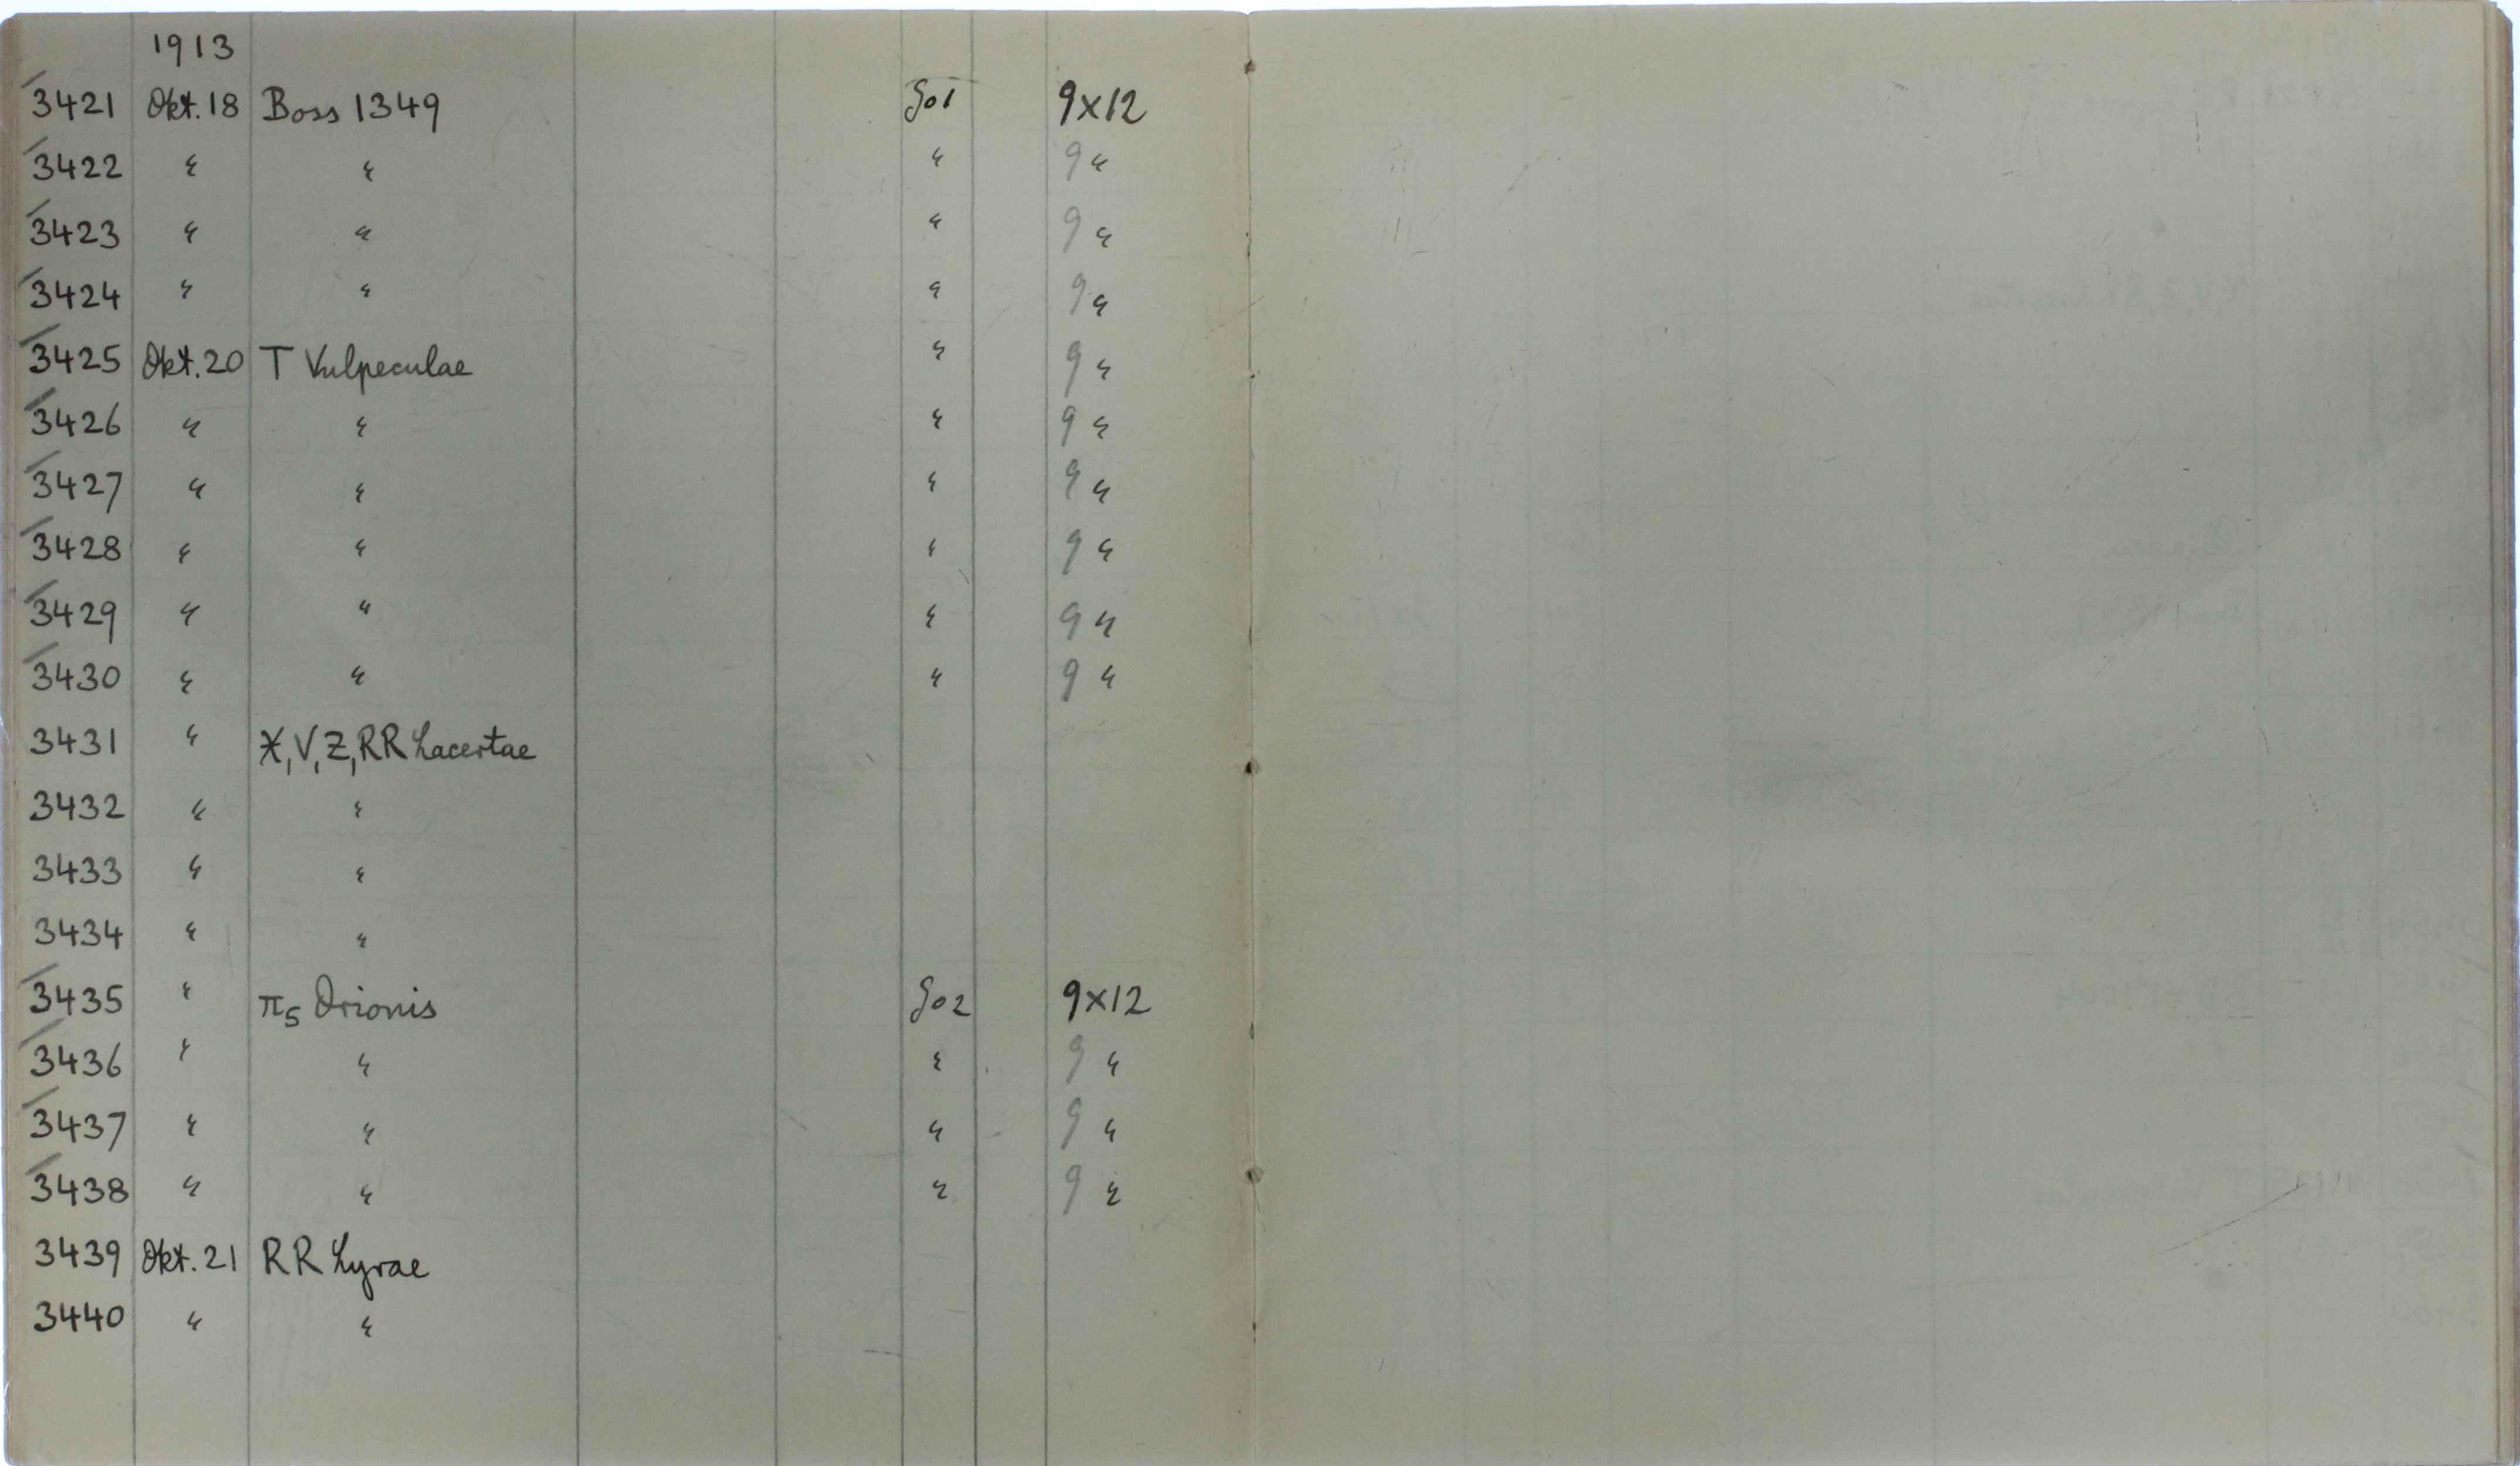 1913
3421 Okt. 18 Boss 1349 Go1 9×12
3422 " " " 9 "
3423 " " " 9 "
3424 " " " 9 "
3425 Okt. 20 T Vulpeculae " 9 "
3426 " " " 9 "
3427 " " " 9 "
3428 " " " 9 "
3429 " " " 9 "
3430 " " " 9 "
3431 " X, V, Z, RR Lacertae
3432 " "
3433 " "
3434 " "
3435 " π5 Orionis Go2 9×12
3436 " " " 9 "
3437 " " " 9 "
3438 " " " 9 "
3439 Okt. 21 RR Lyrae
3440 " "